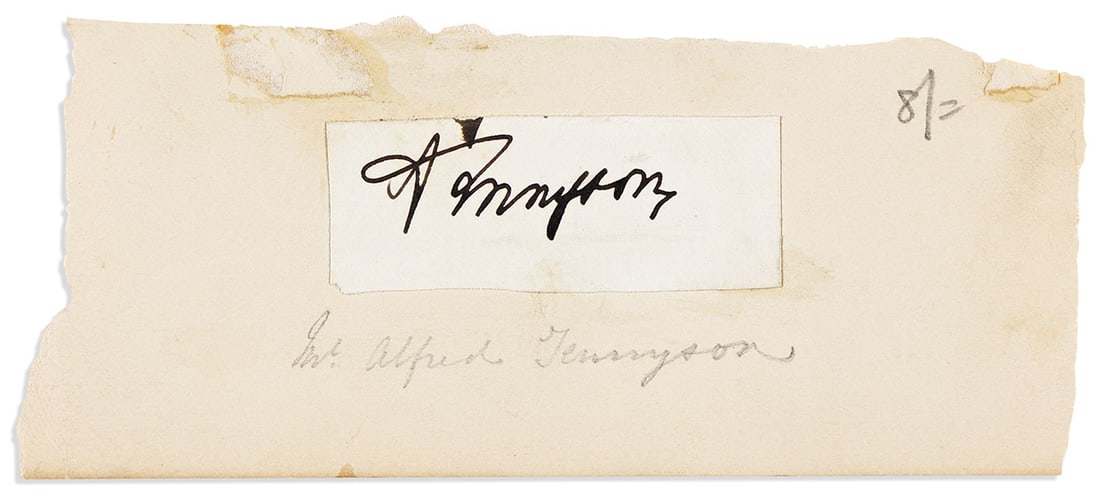 8/=
A Tennyson
Mr. Alfred Tennyson